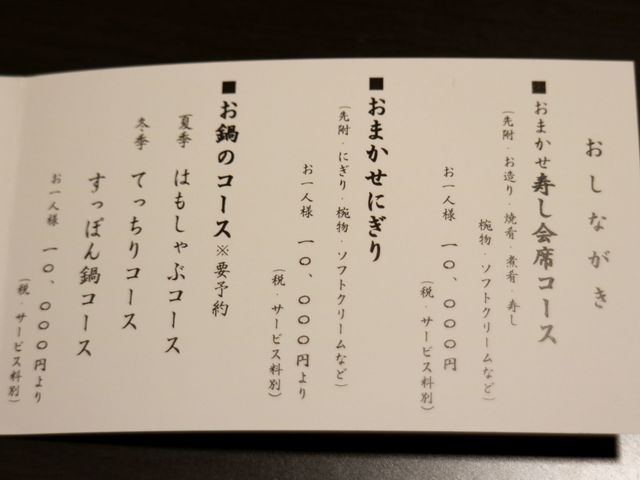 おしながき
■おまかせ寿し会席コース
(先附・お造り・焼肴・煮肴・寿し
椀物・ソフトクリームなど)
お一人様 一〇、〇〇〇円
(税・サービス料別)
■おまかせにぎり
(先附・にぎり・椀物・ソフトクリームなど)
お一人様 一〇、〇〇〇円より
(税・サービス料別)
■お鍋のコース※要予約
夏季 はもしゃぶコース
冬季 てっちりコース
すっぽん鍋コース
お一人様 一〇、〇〇〇円より
(税・サービス料別)